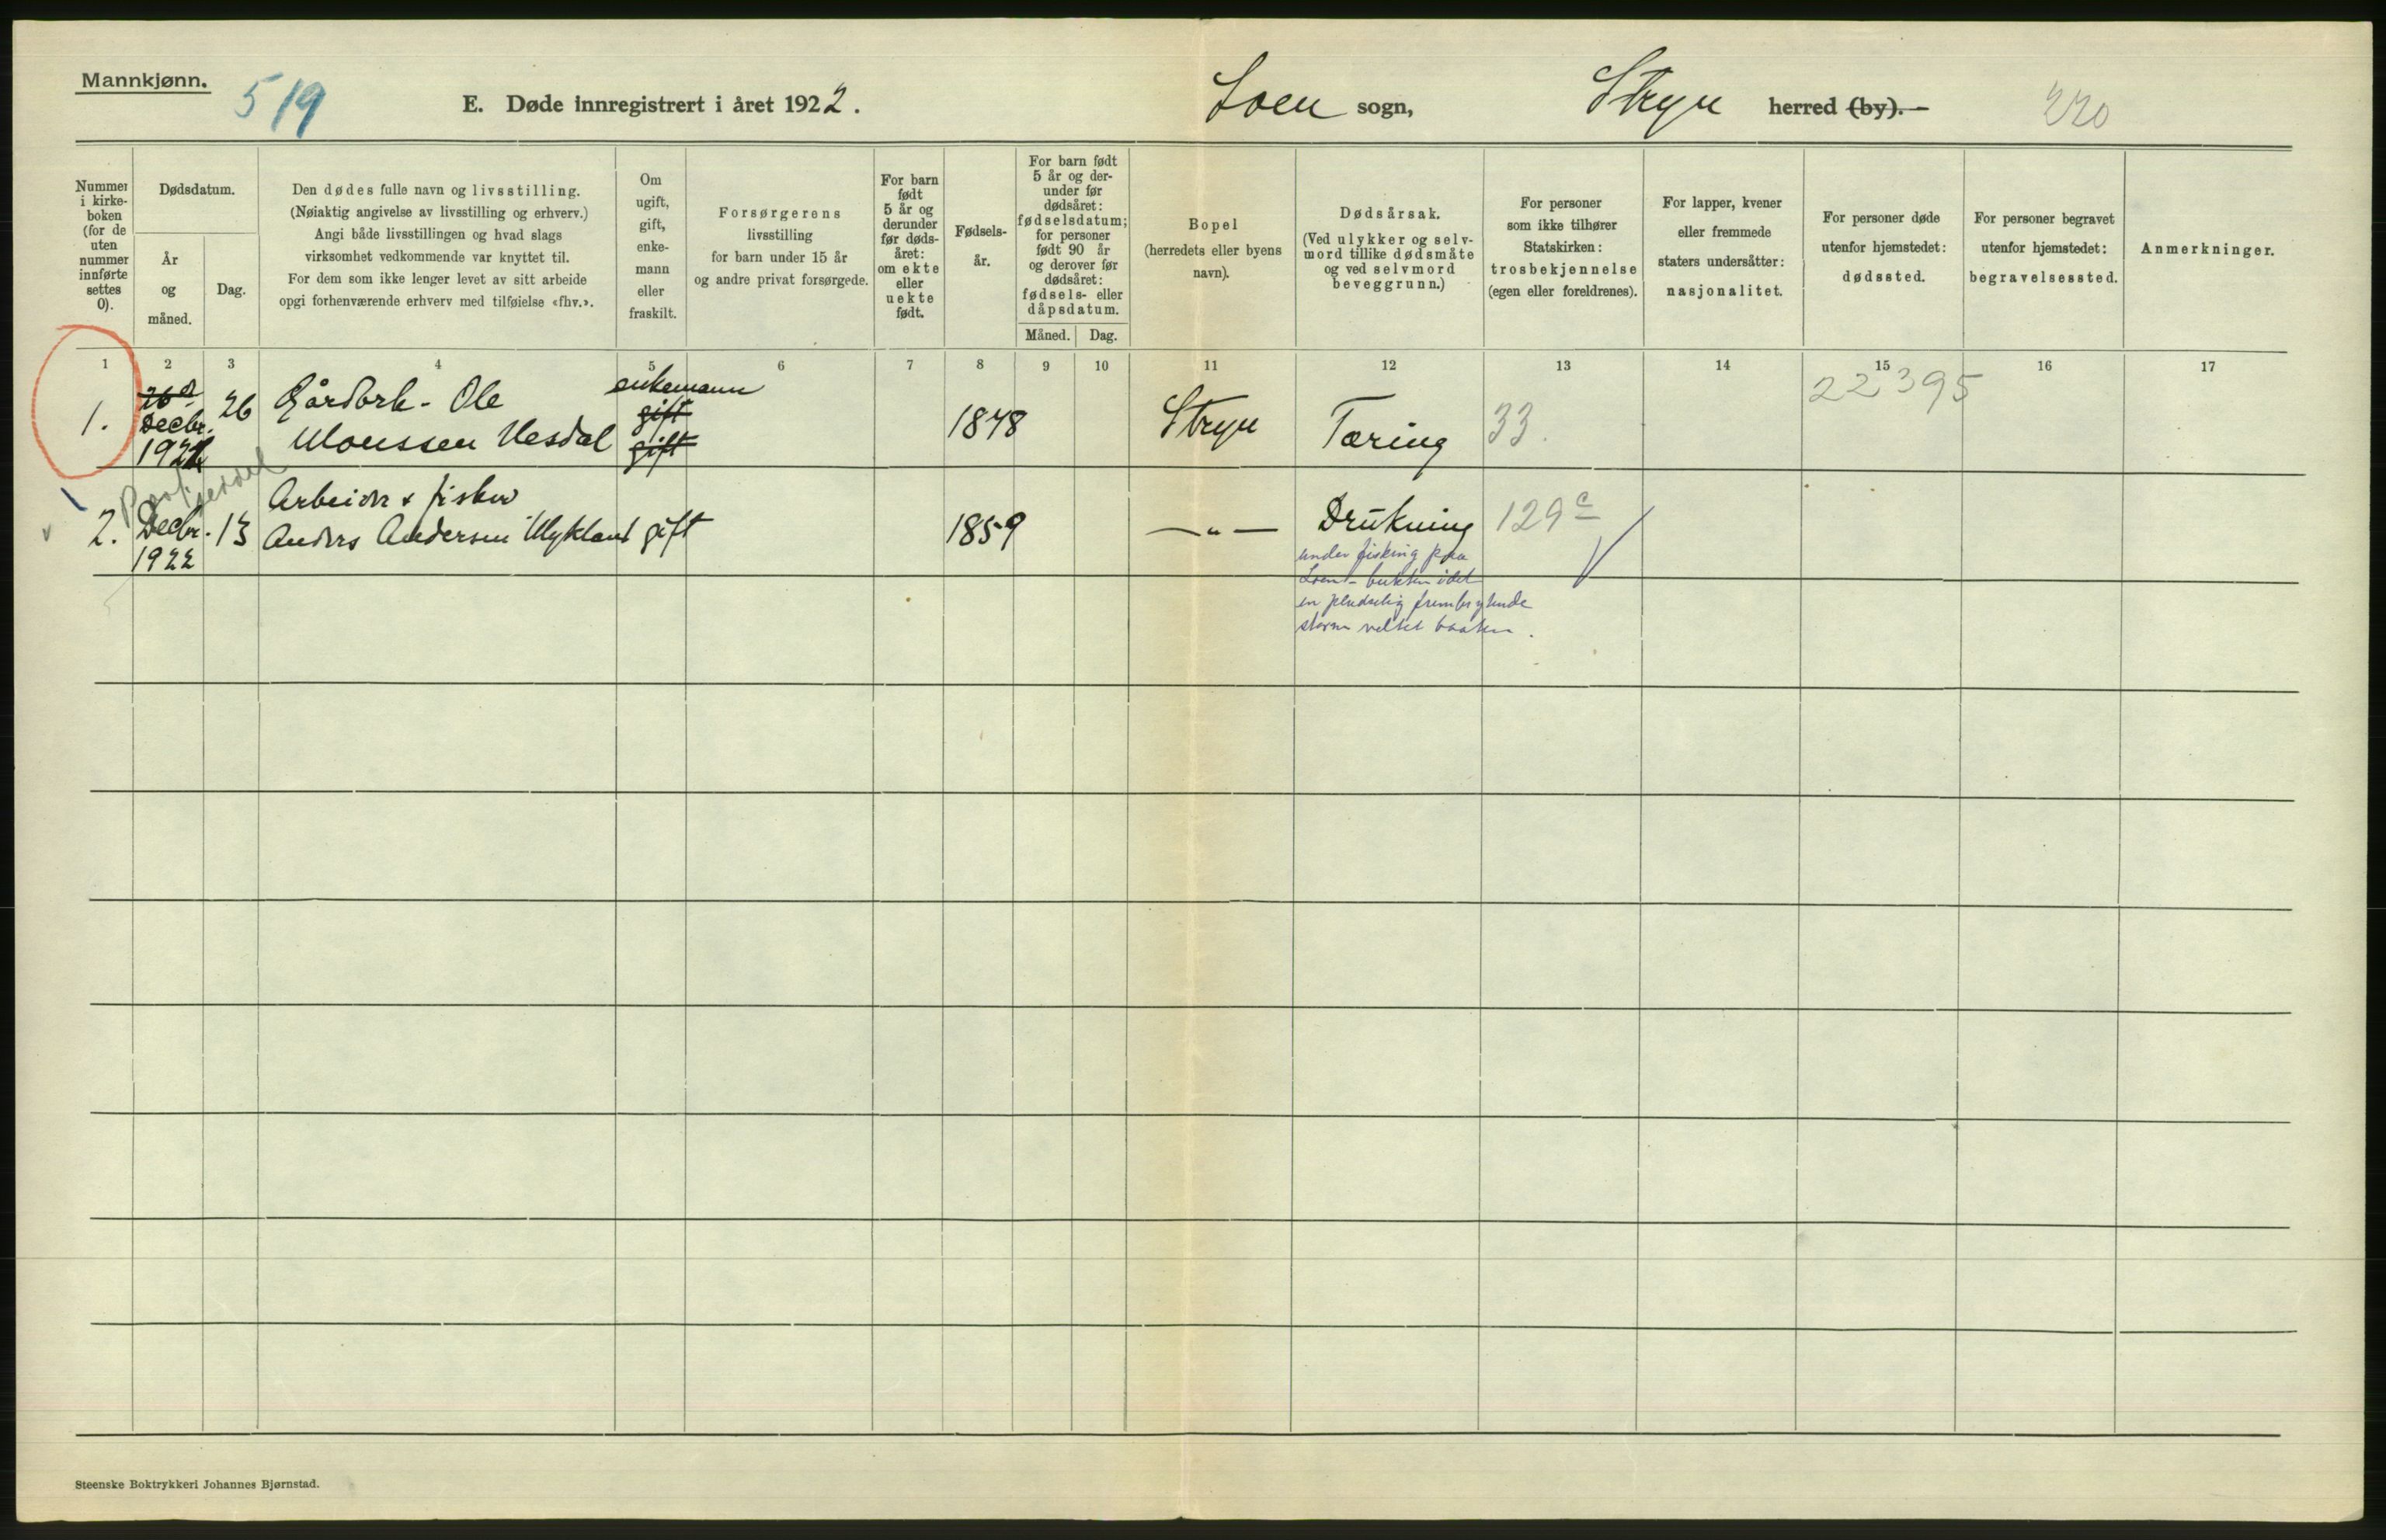 Mannkjønn.
519
E. Døde innregistrert i året 1922.
Loen sogn,
Stryn herred (by).—
220
Nummer
i kirke-
boken
(for de
uten
nummer
innførte
settes
0).
Dødsdatum.
År
og
måned.
Dag.
Den dødes fulle navn og livsstilling.
(Nøiaktig angivelse av livsstilling og erhverv.)
Angi både livsstillingen og hvad slags
virksomhet vedkommende var knyttet til.
For dem som ikke lenger levet av sitt arbeide
opgi forhenværende erhverv med tilføielse «fhv.».
Om
ugift,
gift,
enke-
mann
eller
fraskilt.
Forsørgerens
livsstilling
for barn under 15 år
og andre privat forsørgede.
For barn
født
5 år og
derunder
før døds-
året:
om ekte
eller
uekte
født.
Fødsels-
år.
For barn født
5 år og der-
under før
dødsåret:
fødselsdatum;
for personer
født 90 år
og derover før
dødsåret:
fødsels- eller
dåpsdatum.
Måned. Dag.
Bopel
(herredets eller byens
navn).
Dødsårsak.
(Ved ulykker og selv-
mord tillike dødsmåte
og ved selvmord
beveggrunn.)
For personer
som ikke tilhører
Statskirken:
trosbekjennelse
(egen eller foreldrenes).
For lapper, kvener
eller fremmede
staters undersåtter:
nasjonalitet.
For personer døde
utenfor hjemstedet:
dødssted.
For personer begravet
utenfor hjemstedet:
begravelsessted.
Anmerkninger.
1 2 3 4 5 6 7 8 9 10 11 12 13 14 15 16 17
22395
1.
Decbr.
26
Gårdbrk. Ole
Monssen Nesdal
enkemann
gift
gift
1848
Stryn
Tæring
33.
2.
Decbr.
1922
13
Arbeider & fisker
Anders Andersen Myklandl gift
1859
—"—
Drukning
129c
under fisking paa
Loens-bukten idet
en pludselig frembrytende
storm veltet baaten.
Steenske Boktrykkeri Johannes Bjørnstad.